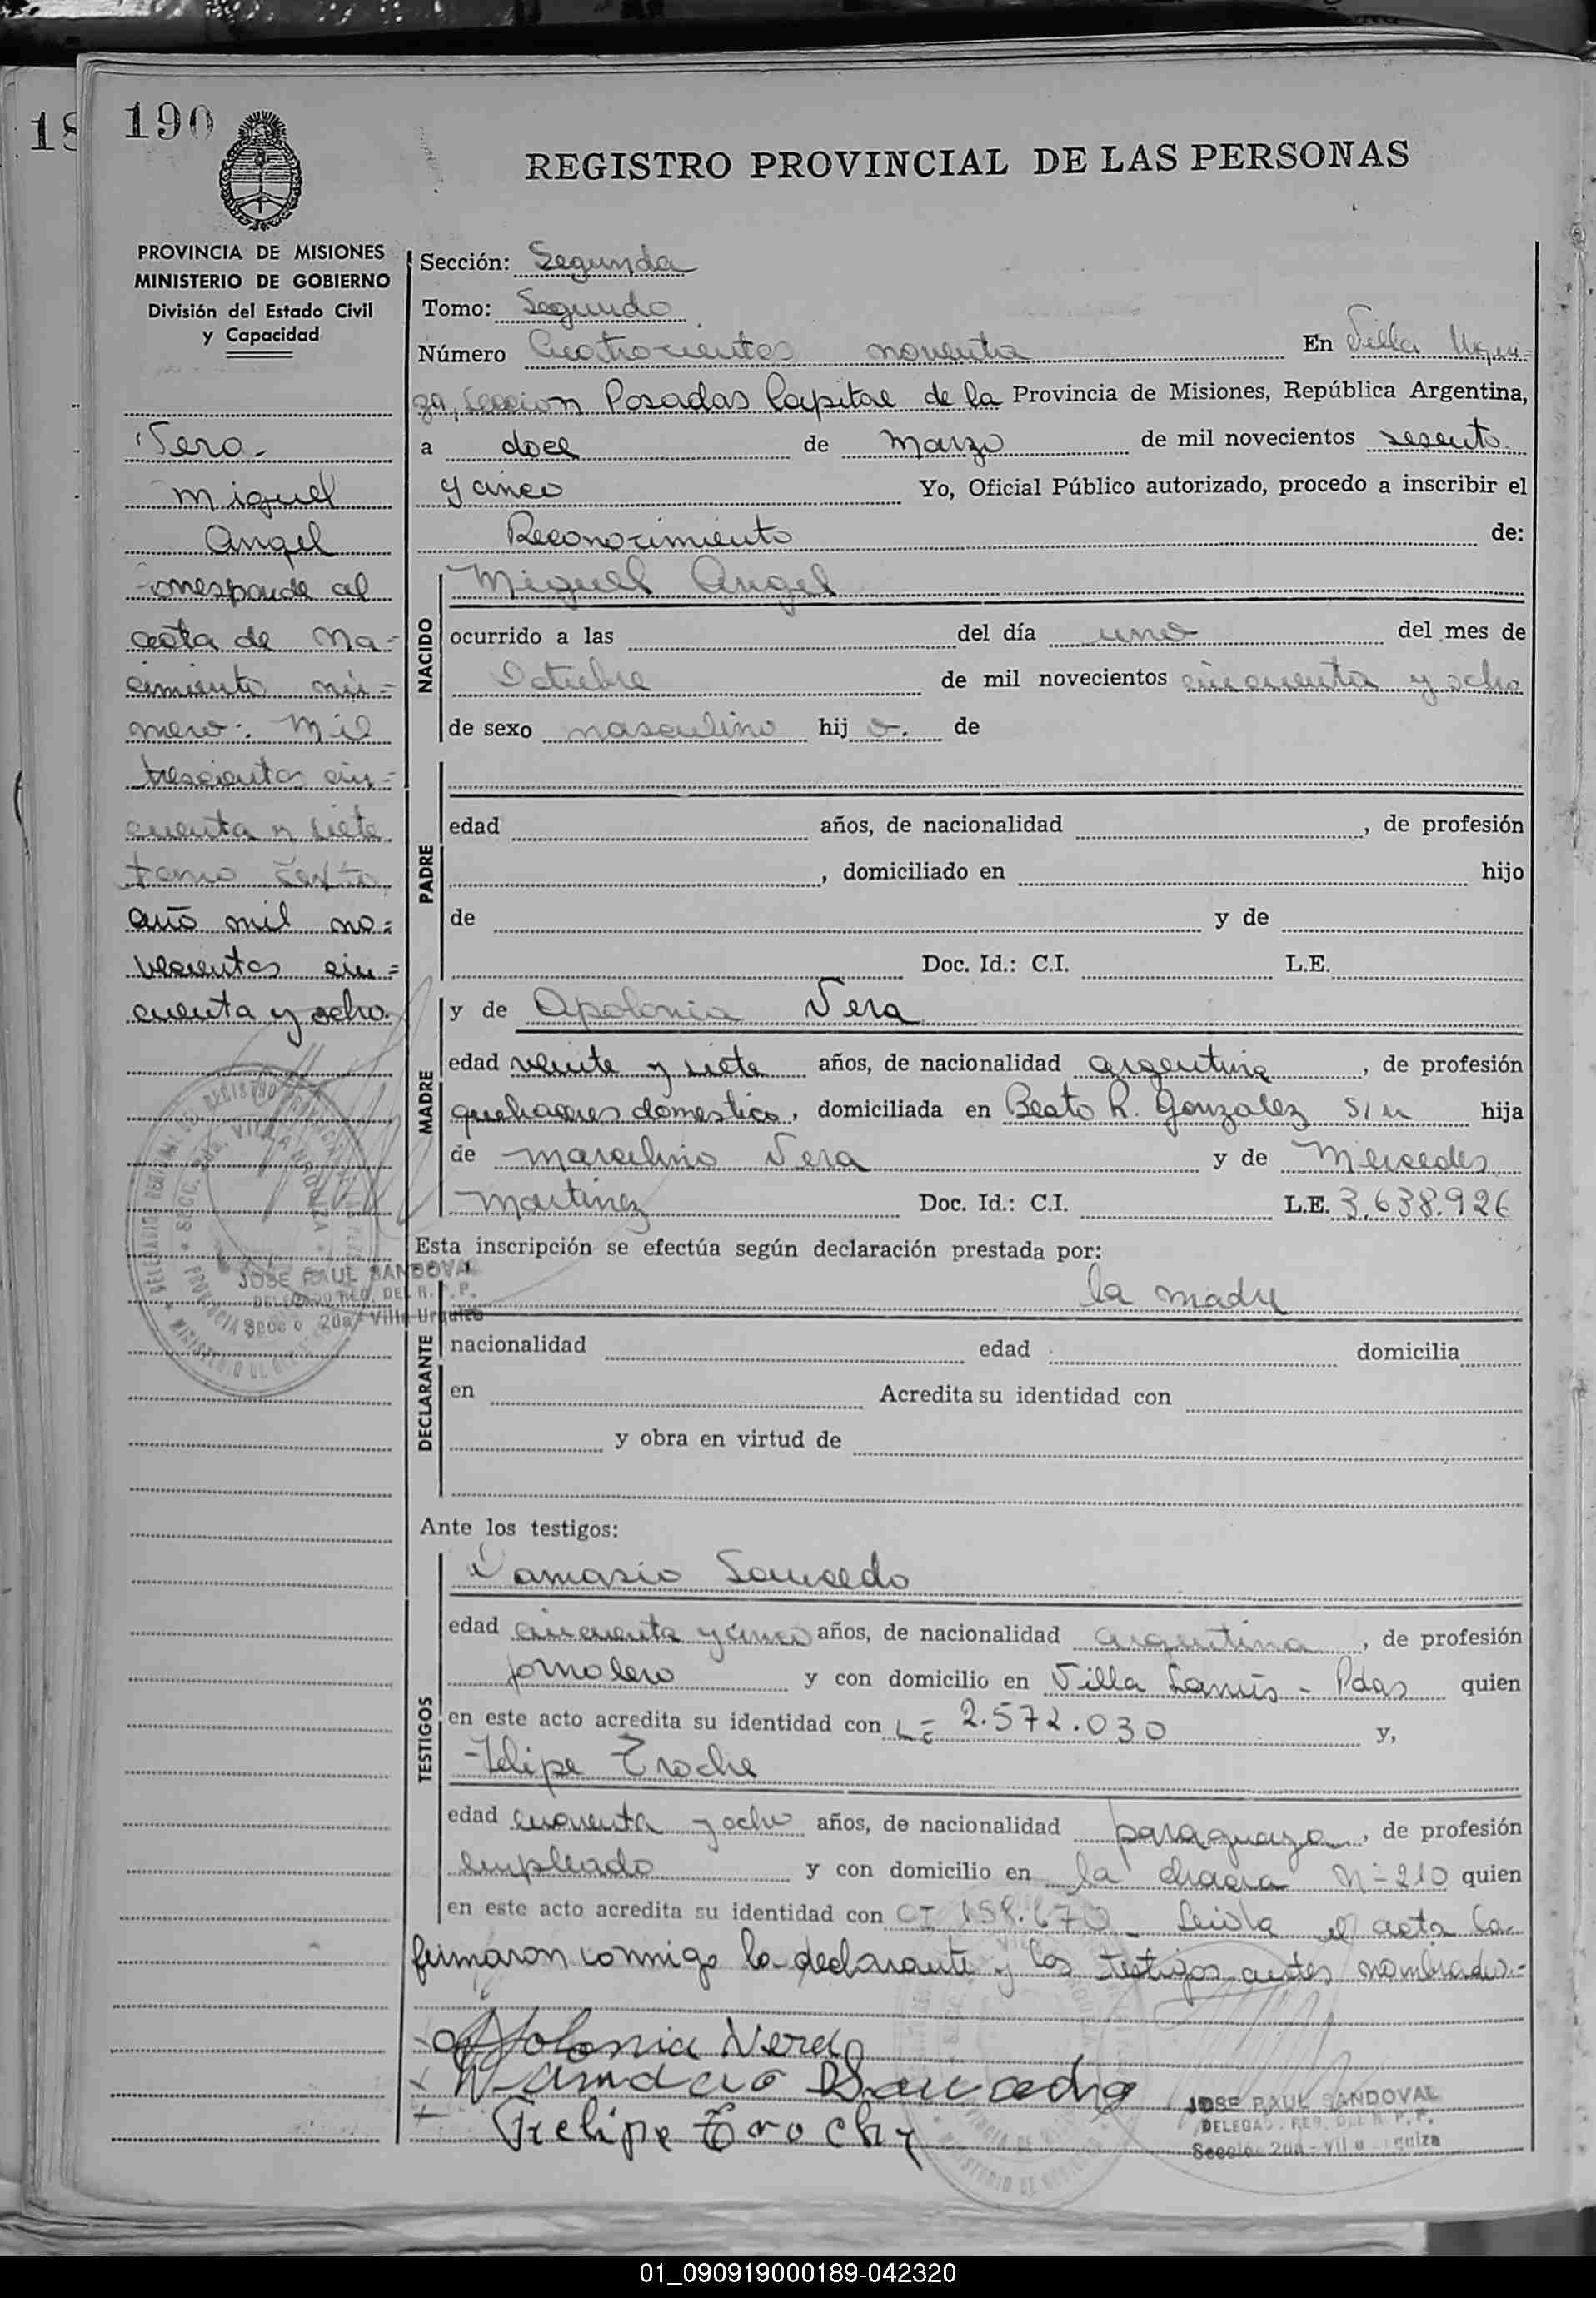 18
190
REGISTRO PROVINCIAL DE LAS PERSONAS
PROVINCIA DE MISIONES
MINISTERIO DE GOBIERNO
División del Estado Civil
y Capacidad
Vera
Miguel
Angel
Corresponde al
acta de Na=
cimiento nú=
mero: Mil
trescientos cin=
cuenta y siete
tomo sexto
año mil no=
vecientos cin=
cuenta y ocho.
Sección: Segunda
Tomo: Segundo
Número Cuatrocientos noventa En Villa Urqui=
za, Seccion Posadas Capital de la Provincia de Misiones, República Argentina,
a doce de Marzo de mil novecientos sesenta
y cinco Yo, Oficial Público autorizado, procedo a inscribir el
Reconocimiento de:
NACIDO
Miguel Angel
ocurrido a las del día uno del mes de
Octubre de mil novecientos cincuenta y ocho
de sexo masculino hij o. de
PADRE
edad años, de nacionalidad , de profesión
, domiciliado en hijo
de y de
Doc. Id.: C.I. L.E.
MADRE
y de Apolonia Vera
edad veinte y siete años, de nacionalidad argentina, de profesión
quehaceres domestico, domiciliada en Beato R. Gonzalez s/n hija
de Marcelino Vera y de Mercedes
Martinez Doc. Id.: C.I. L.E. 3.638.926
Esta inscripción se efectúa según declaración prestada por:
la madre
JOSE RAUL SANDOVAL
DELEGADO REG. DEL R. P. P.
Secc 2da - Villa Urquiza
DECLARANTE
nacionalidad edad domicilia
en Acredita su identidad con
y obra en virtud de
Ante los testigos:
TESTIGOS
Damasio Saucedo
edad cincuenta y cinco años, de nacionalidad argentina, de profesión
jornalero y con domicilio en Villa Lanús - Pdas quien
en este acto acredita su identidad con LE 2.572.030 y,
Felipe Troche
edad cuarenta y ocho años, de nacionalidad paraguaya, de profesión
empleado y con domicilio en la chacra N=210 quien
en este acto acredita su identidad con CI 158.670 Leida el acta la
firmaron conmigo la declarante y los testigos antes nombrados.=
Apolonia Vera
Damacio Saucedo
Felipe Troche
JOSE RAUL SANDOVAL
DELEGAD. REG. DEL R. P. P.
Sección 2da - Villa Urquiza
01_090919000189-042320